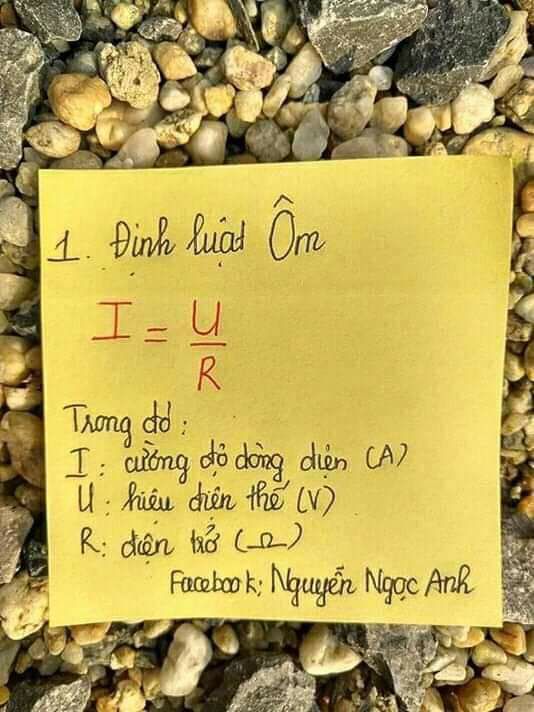 1. Định luật Ôm
I = U/R
Trong đó:
I: cường độ dòng điện (A)
U: hiệu điện thế (V)
R: điện trở (Ω)
Facebook: Nguyễn Ngọc Anh